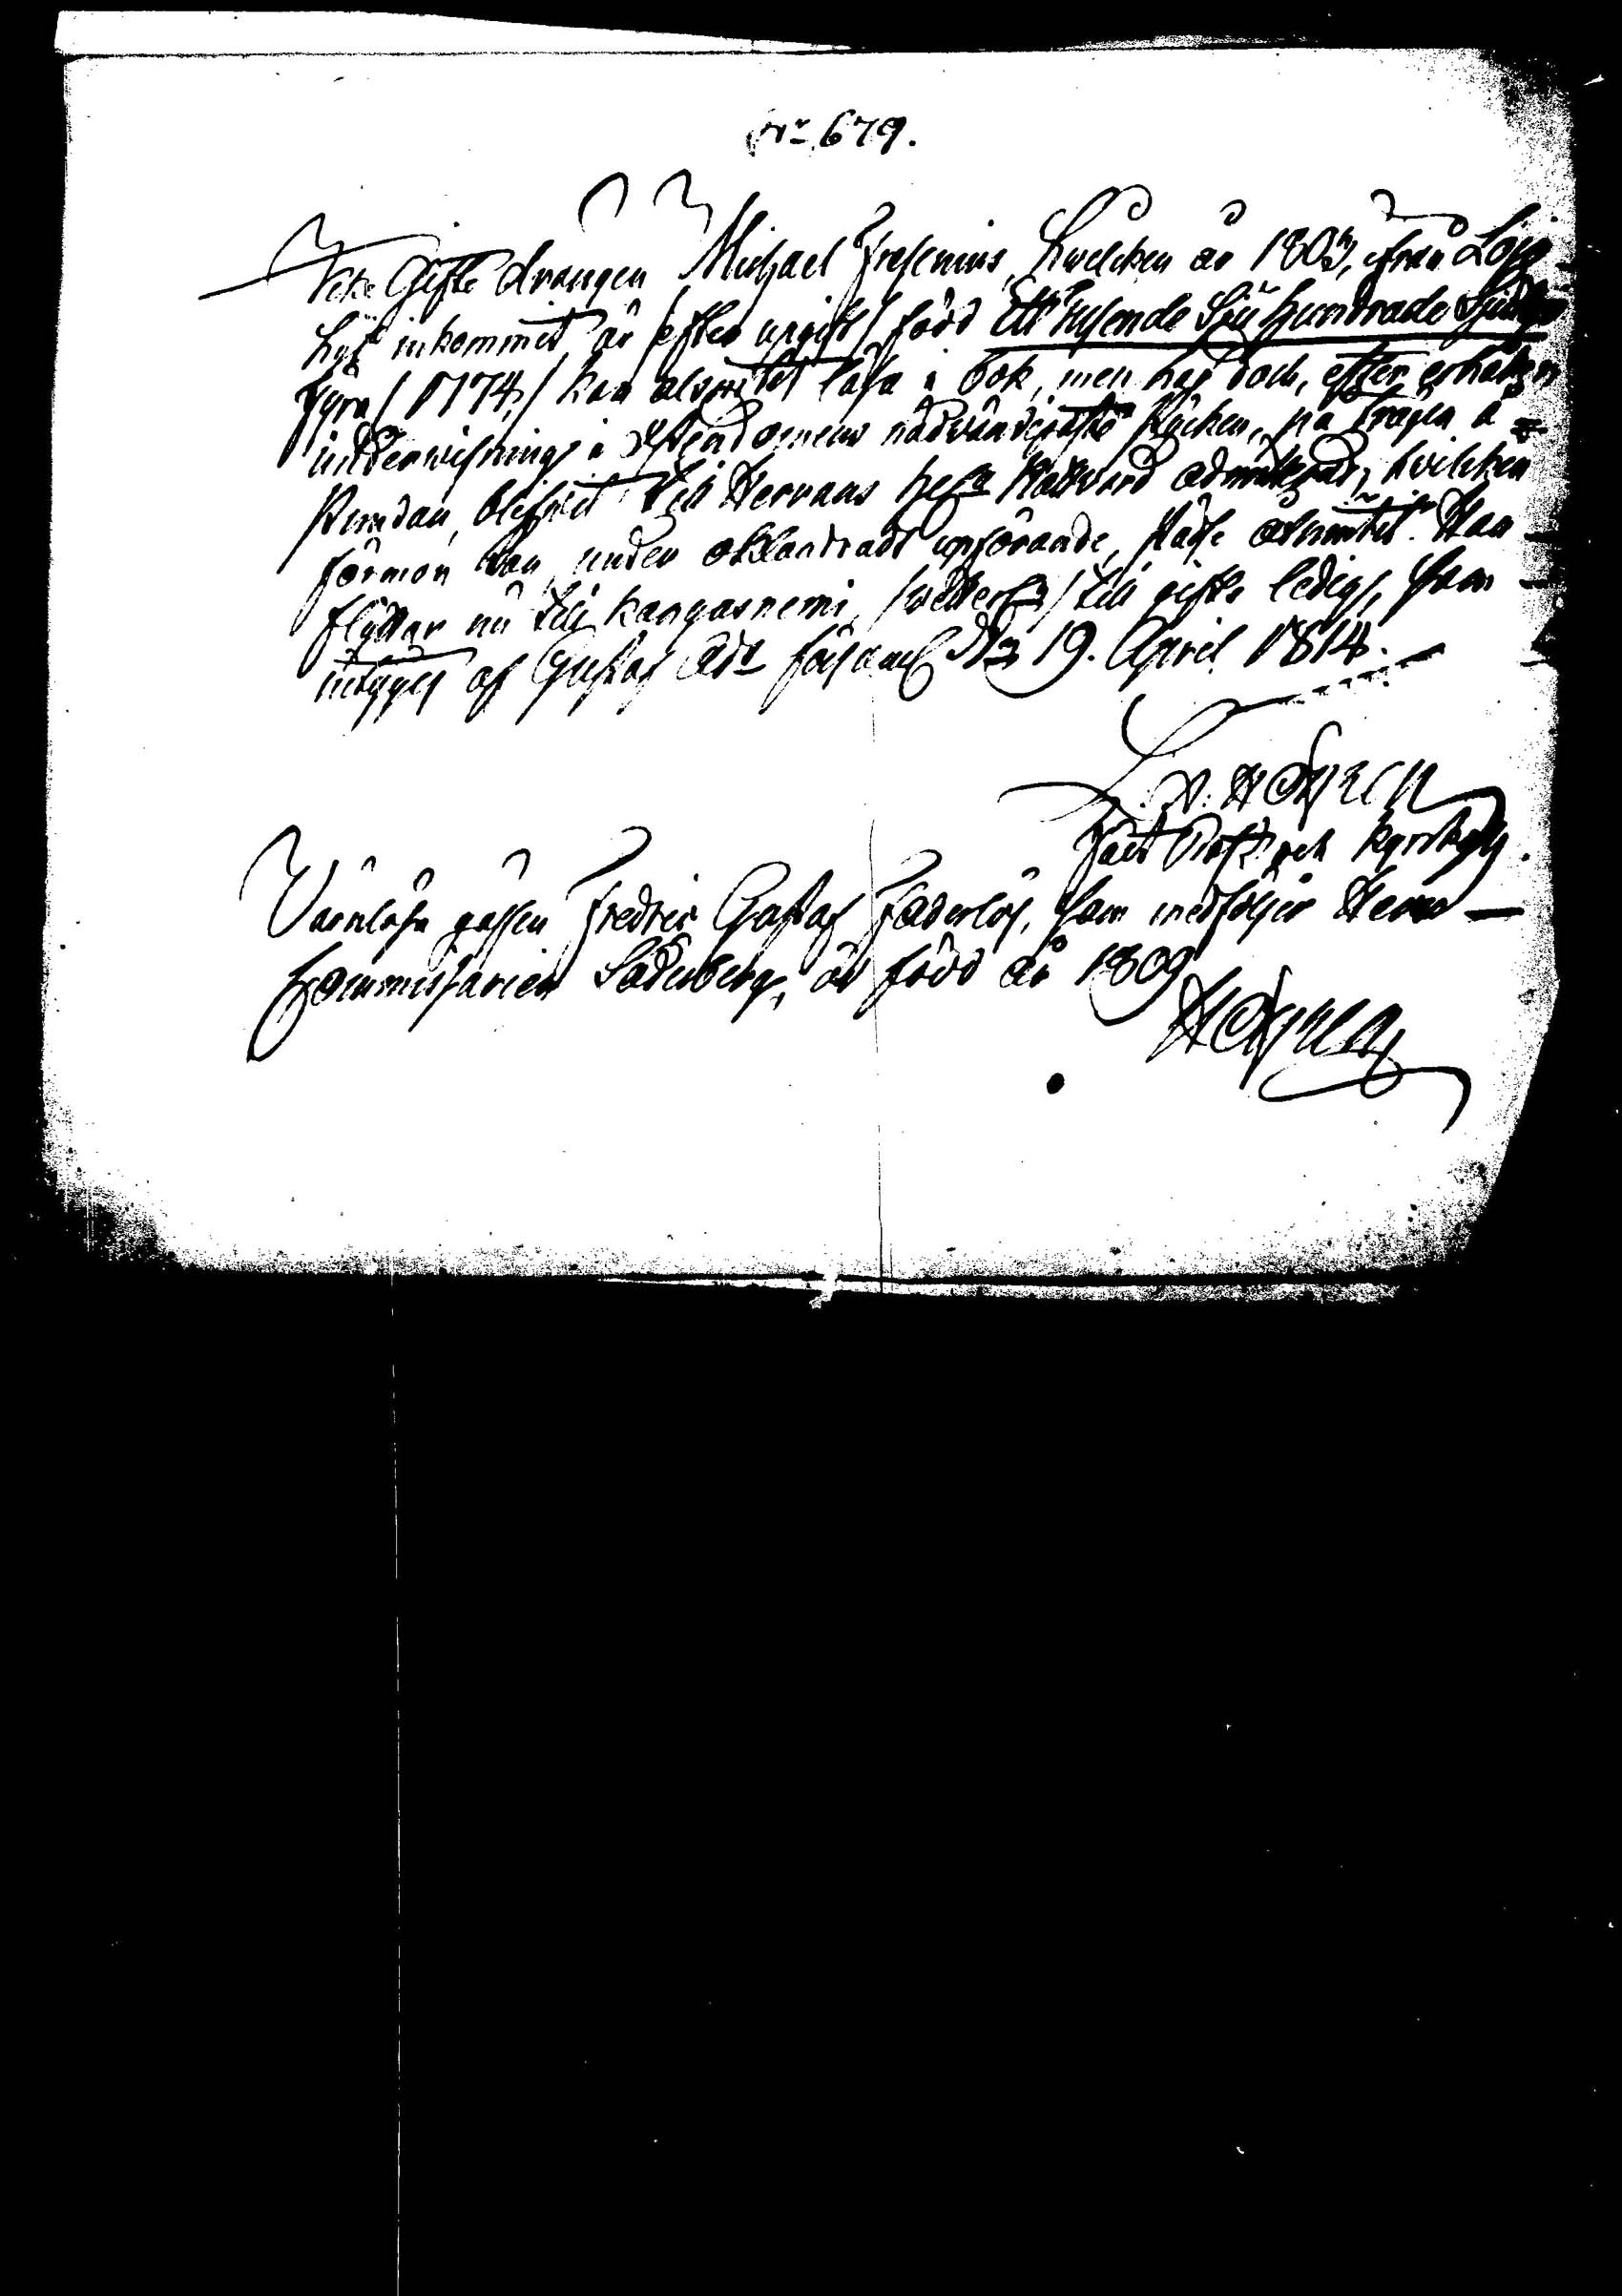 Nr 679.
Icke Gifte drängen Michael Fresenius, hwilcken år 1803, ifrån Lojo
inkommit är /efter upgift/ född Ett tusende Sju hundrade Sjutio
fyra /1774,/ kan alsintet läsa i bok, men har doch, efter erhållen
underwisning i Christendomens nödwändigaste stycken, på frågan å
stundan, blifwit till Herrans Hel. Nattvard admitterad, hvilcken
förmon han, under oklandradt upförande, städse åtniutit. Han
flyttar nu till Kangasniemi, till gifte ledig, som
intygas af Gustaf Ad. församl. d. 19. April 1814.
Prost och Kyrkoh.
Värnlösa gossen Fredric Gustaf Faderlös, som medföljer Herr
Commissarien Söderberg, är född år 1809